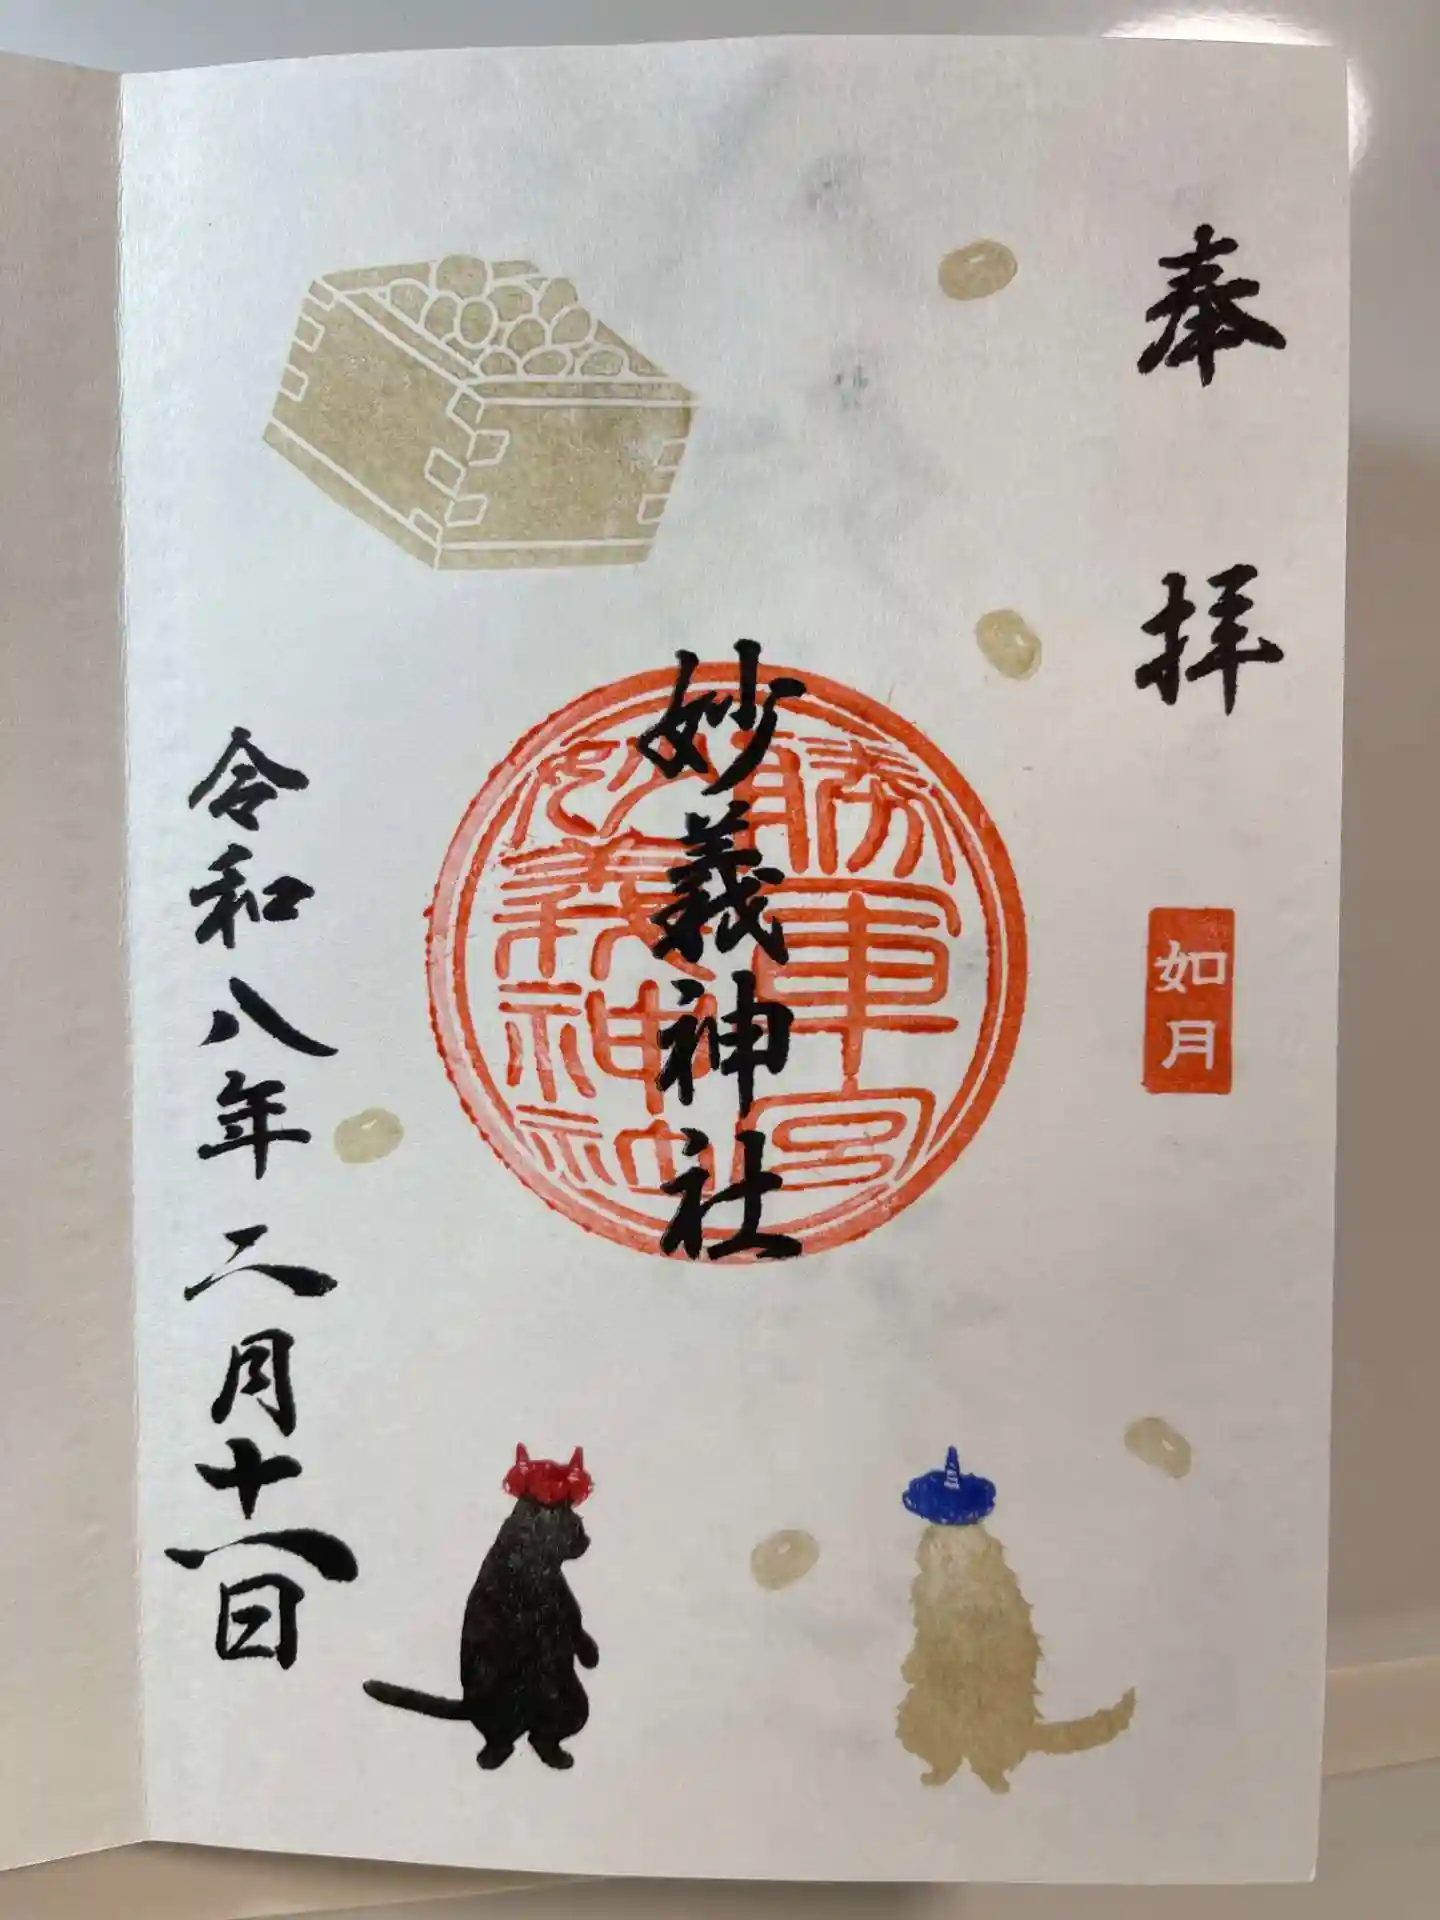 奉拝
如月
妙義神社
勝軍宮
妙義神社
令和八年二月十八日